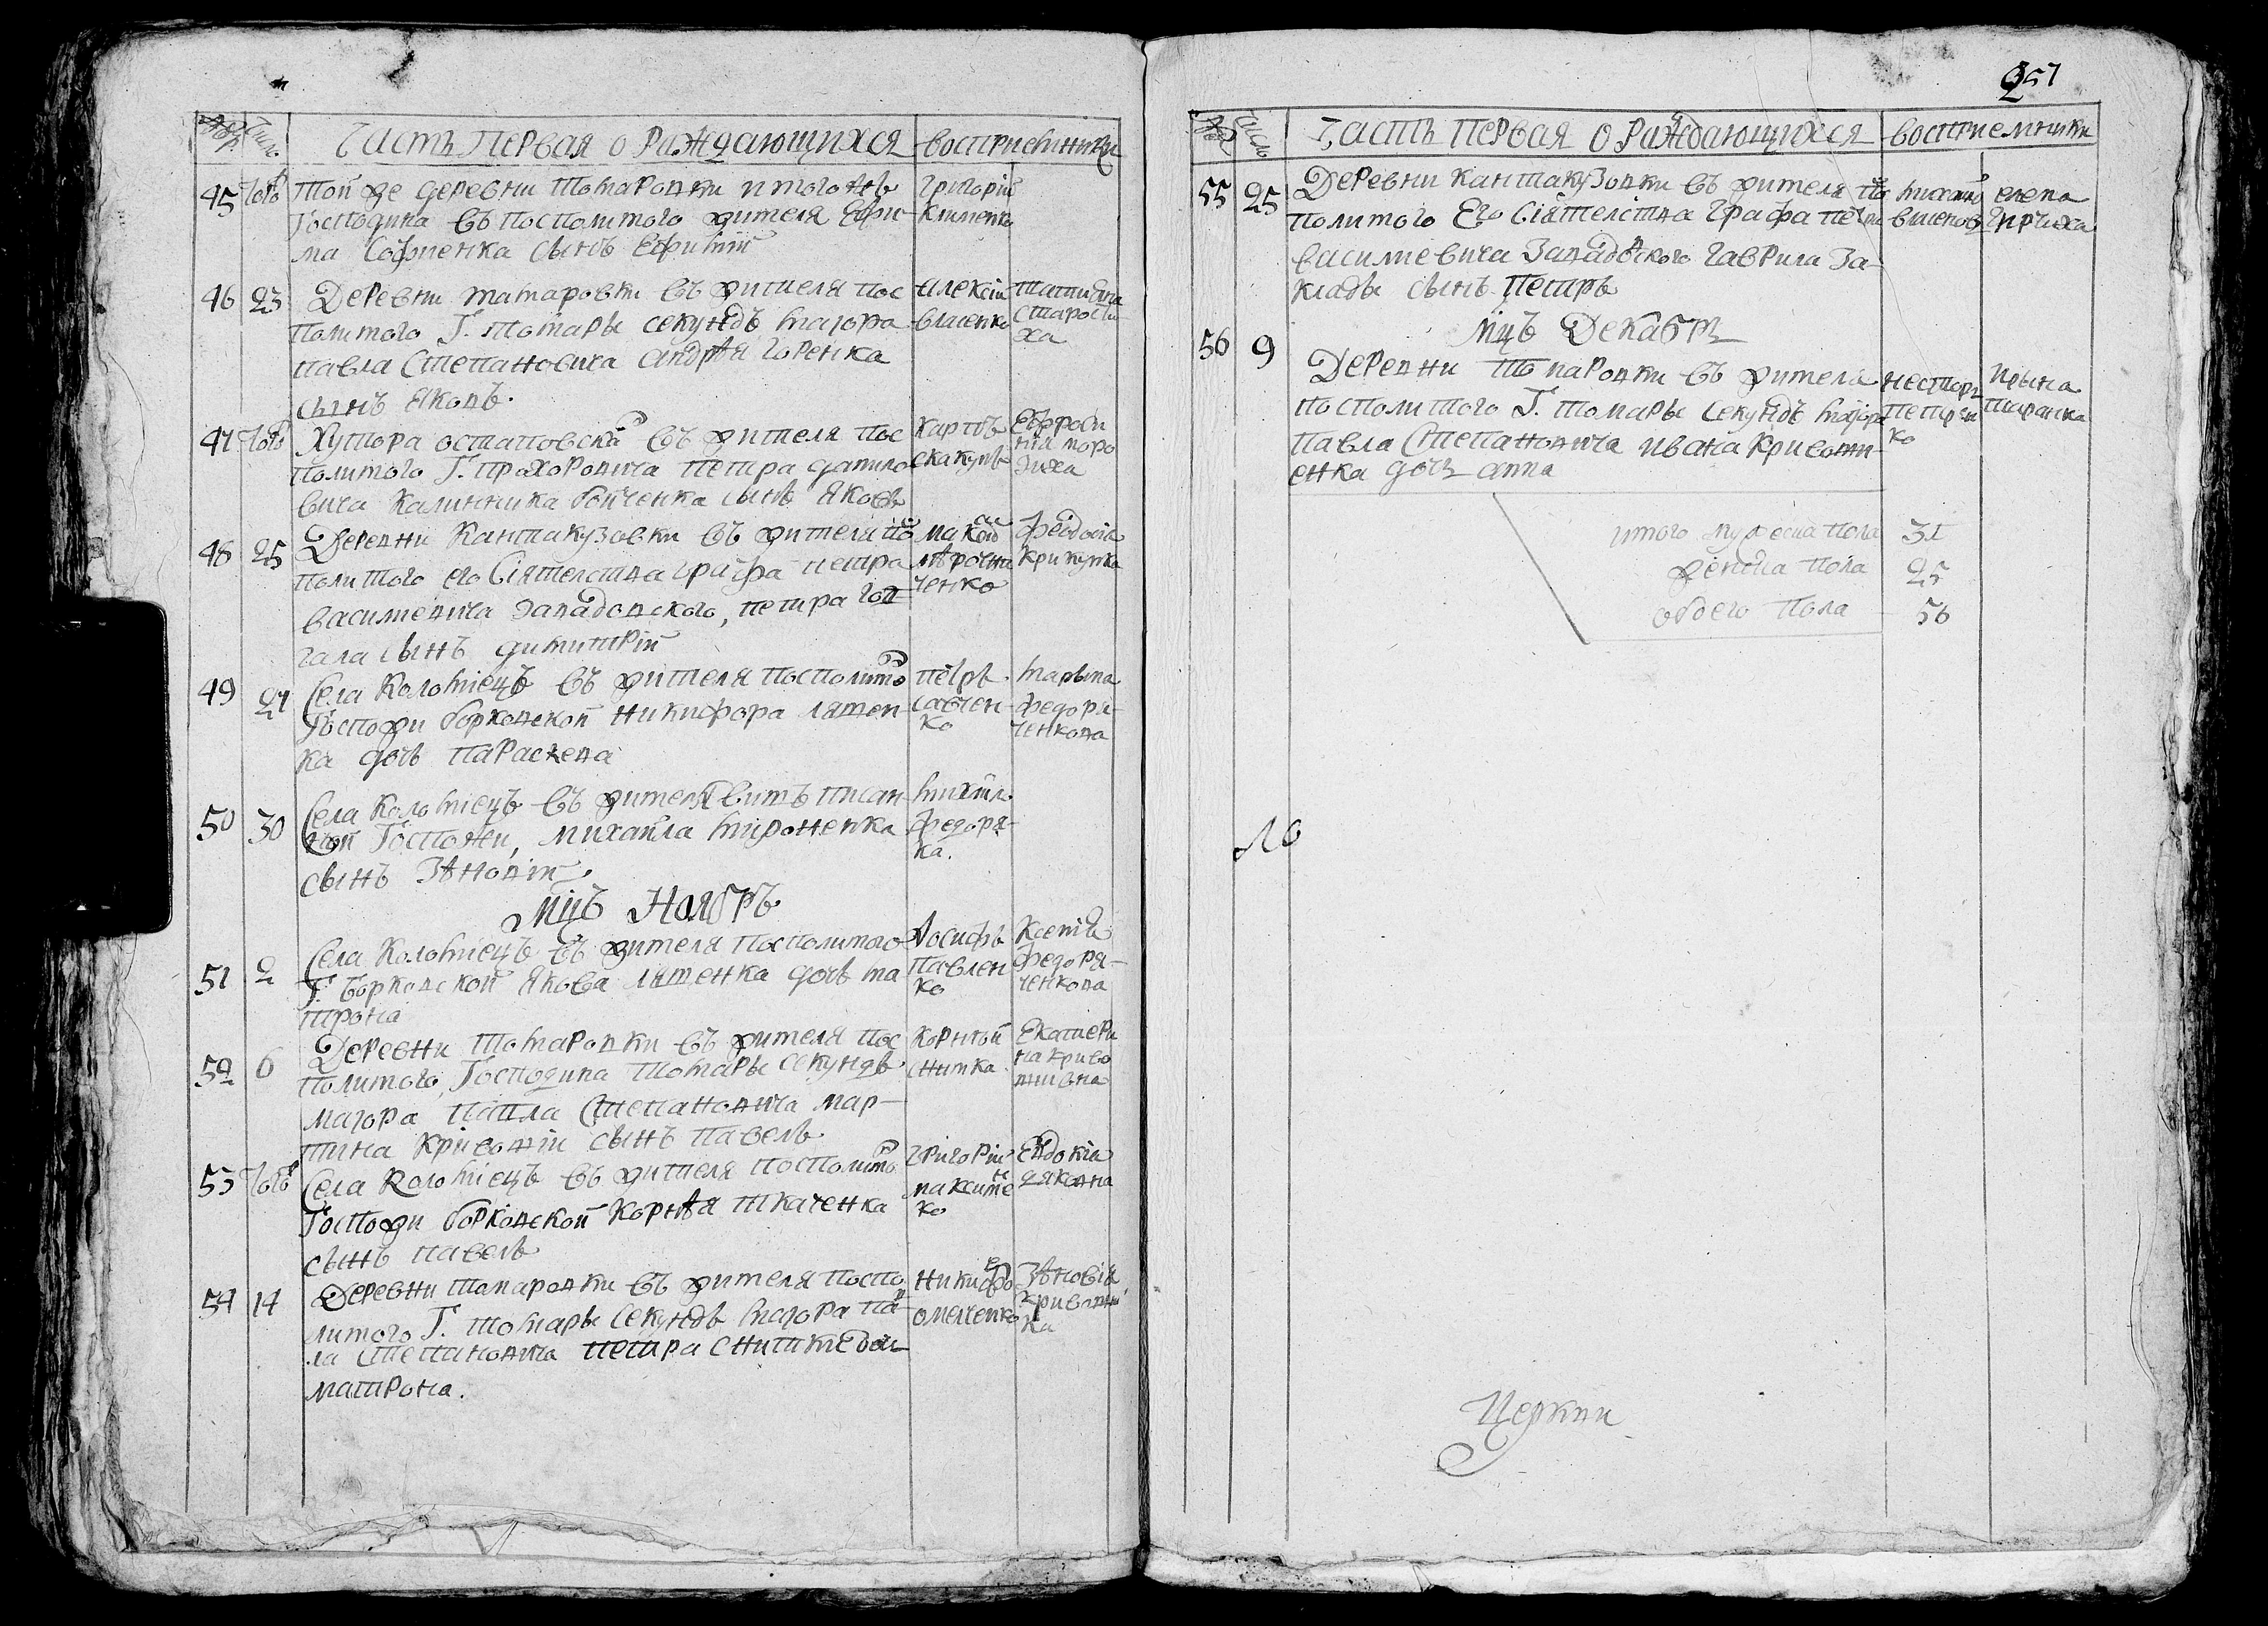 Число
Часть Первая о Раждающихся
восприемники
45 того
той же деревни томаровки итогожъ
Господина въ посполитого жителя Ефи-
ма Софиенка сынъ Ефимій
Григорій
Клименко
46 23
Деревни томаровки въ жителя пос
политого Г. томары секундъ маіора
павла Степановича андрѣя горенка
сынъ Яковъ.
Алексій
власенко
татияна
старости-
ха
47 того
Хутора остаповска въ жителя пос
политого Г. прохоровича петра данило
вича Калинника бойченка сынъ Яковъ
Карпъ
скакунъ
Ефроси
нія моро
зиха
48 25
Деревни Кантакузовки въ жителя по
политого его Сіятелства графа петра
василиевича завадовского, петра гол
гала сынъ димитрій
феодосіа
крикунка
ченко
49 27
Села Коломіецъ въ жителя посполито
Госпожи борковской никифора лятен-
ка дочь параскева
петръ
савчен-
ко
марына
федоря-
ченкова
50 30
Села Коломіецъ въ жителя вишъ писан-
ной Госпожи, михаила мироненка
сынъ Зѣновій.
михаил
федоря-
ка.
мцъ Ноябръ
51 2
Села Коломіецъ въ жителя посполитого
Г. борковской Якова лятенка дочь ма
трона
Иосифъ
павлен
ко
Ксенія
федоря-
ченкова
52 6
Деревни томаровки въ жителя пос
политого, Господина томары секундъ
маіора павла Степановича мар-
тина кривошіи сынъ павелъ
Корнѣй
снитка
Екатери
на криво
шіивна
53 того
Села Коломіецъ въ жителя посполито
Госпожи борковской корнѣя ткаченка
сынъ павелъ
григорій
максиме
ко
Евдокіа
дяковна
54 14
Деревни томаровки въ жителя поспо
литого Г. томары секундъ маіора пав
ла степановича петра снитки дочь
матрона.
никифо
омелченко
Зѣновіа
кривоший
ка
257
Число
Часть Первая о Раждающихся
восприемники
55 25
Деревни кантакузовки въ жителя по
политого Его Сіятелства графа петра
василиевича Завадовского гаврила За-
клады сынъ петръ
михайло
власенко
елена
гирчиха
мцъ Декабръ
56 9
Деревни томаровки въ жителя
посполитого Г. томары секундъ маіора
павла Степановича ивана кривоши-
енка дочь анна
несторъ
петрен
ко
ирына
итого мужеска пола 31
женска пола 25
обоего пола 56
Церкви